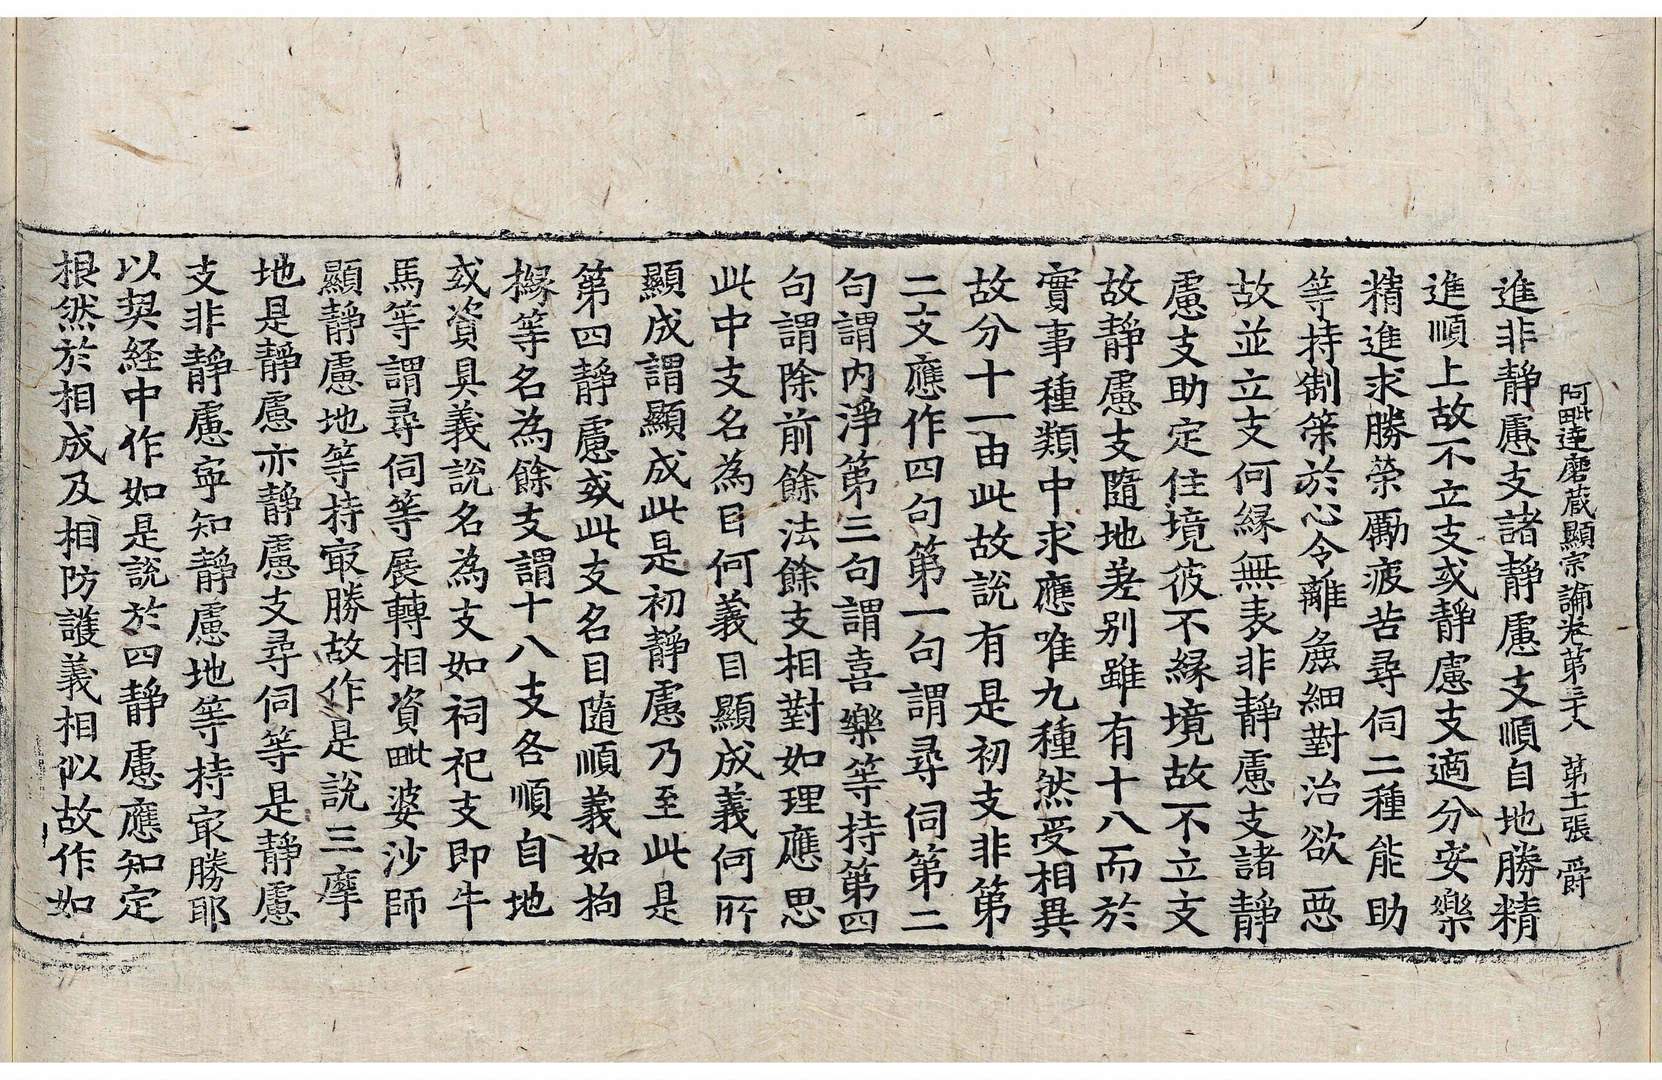 阿毗達磨蔵顯宗論卷第三十八 第十一張 爵
進非靜慮支諸靜慮支順自地勝精
進順上故不立支或靜慮支適分安樂
精進求勝榮勵疲苦尋伺二種能助
等持制策於心令離麁細對治欲惡
故並立支何縁無表非靜慮支諸靜
慮支助定住境彼不縁境故不立支
故靜慮支隨地差別雖有十八而於
實事種類中求應唯九種然受相異
故分十一由此故說有是初支非第
二支應作四句第一句謂尋伺第二
句謂内淨第三句謂喜樂等持第四
句謂除前餘法餘支相對如理應思
此中支名為目何義目顯成義何所
顯成謂顯成此是初靜慮乃至此是
第四靜慮或此支名目隨順義如拘
櫞等名為餘支謂十八支各順自地
或資具義說名為支如祠祀支即牛
馬等謂尋伺等展轉相資毗婆沙師
顯靜慮地等持㝡勝故作是說三摩
地是靜慮亦靜慮支尋伺等是靜慮
支非靜慮寧知靜慮地等持㝡勝耶
以契経中作如是說於四靜慮應知定
根然於相成及相防護義相似故作如